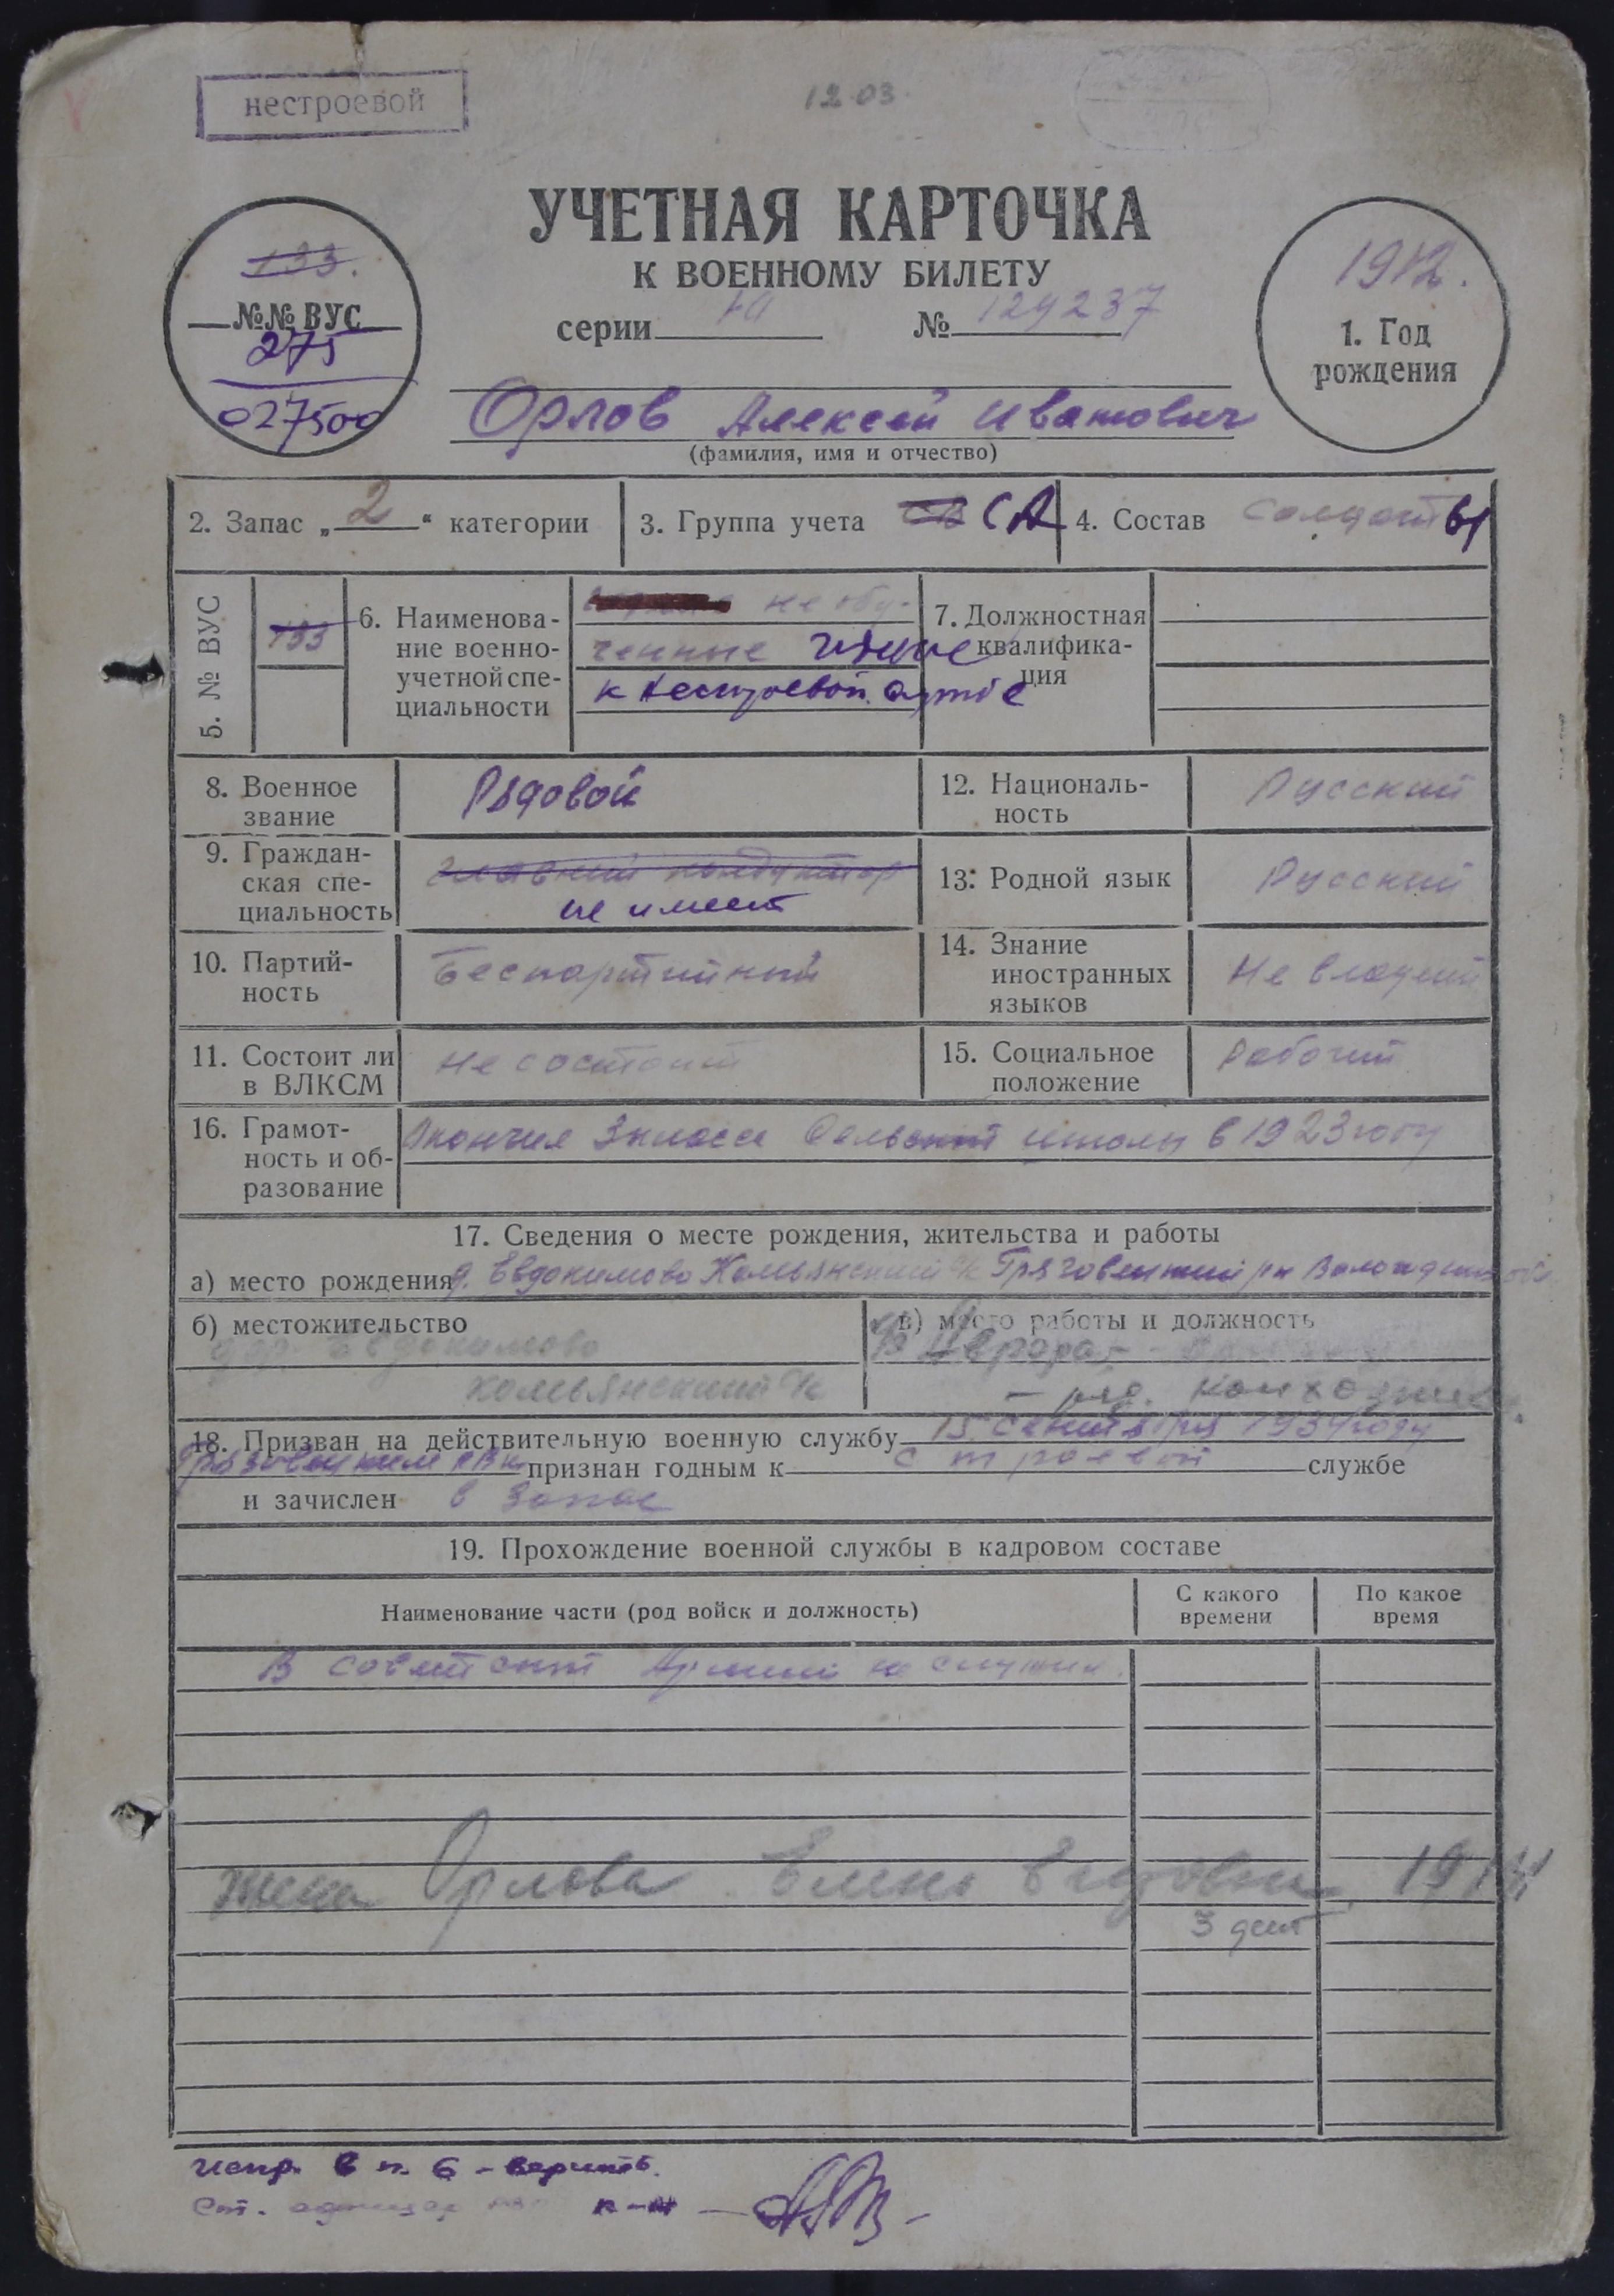 нестроевой
12.03.
УЧЕТНАЯ КАРТОЧКА
К ВОЕННОМУ БИЛЕТУ
серии № 129237
133.
№№ ВУС
275
027500
1912.
1. Год
рождения
Орлов Алексей Иванович
(фамилия, имя и отчество)
2. Запас „2“ категории
3. Группа учета СА
4. Состав солдаты
5. № ВУС
133
6. Наименова-
ние военно-
учетной спе-
циальности
не обу-
ченные
к нестроевой службе
7. Должностная
квалифика-
ция
8. Военное
звание
Рядовой
12. Националь-
ность
Русский
9. Граждан-
ская спе-
циальность
главный кондуктор
не имеет
13. Родной язык
Русский
10. Партий-
ность
Беспартийный
14. Знание
иностранных
языков
Не владеет
11. Состоит ли
в ВЛКСМ
Не состоит
15. Социальное
положение
Рабочий
16. Грамот-
ность и об-
разование
Окончил 3 класса Сельской школы в 1923 году
17. Сведения о месте рождения, жительства и работы
а) место рождения д. Евдокимово Комьянский с/с Грязовецкий р-н Вологодской обл
б) местожительство
дер. Евдокимово
Комьянский с/с
в) место работы и должность
18. Призван на действительную военную службу 15 сентября 1934 году
Грязовецким РВК признан годным к строевой службе
и зачислен в запас
19. Прохождение военной службы в кадровом составе
Наименование части (род войск и должность)
С какого
времени
По какое
время
В советской Армии не служил.
жена Орлова Елена
3 дет
Испр. в п. 6 - верить.
Ст.